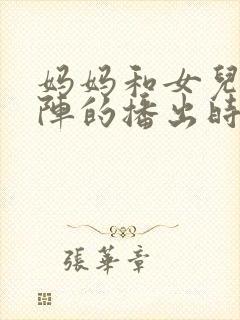 妈妈和女兒
陣的播出時
張華章